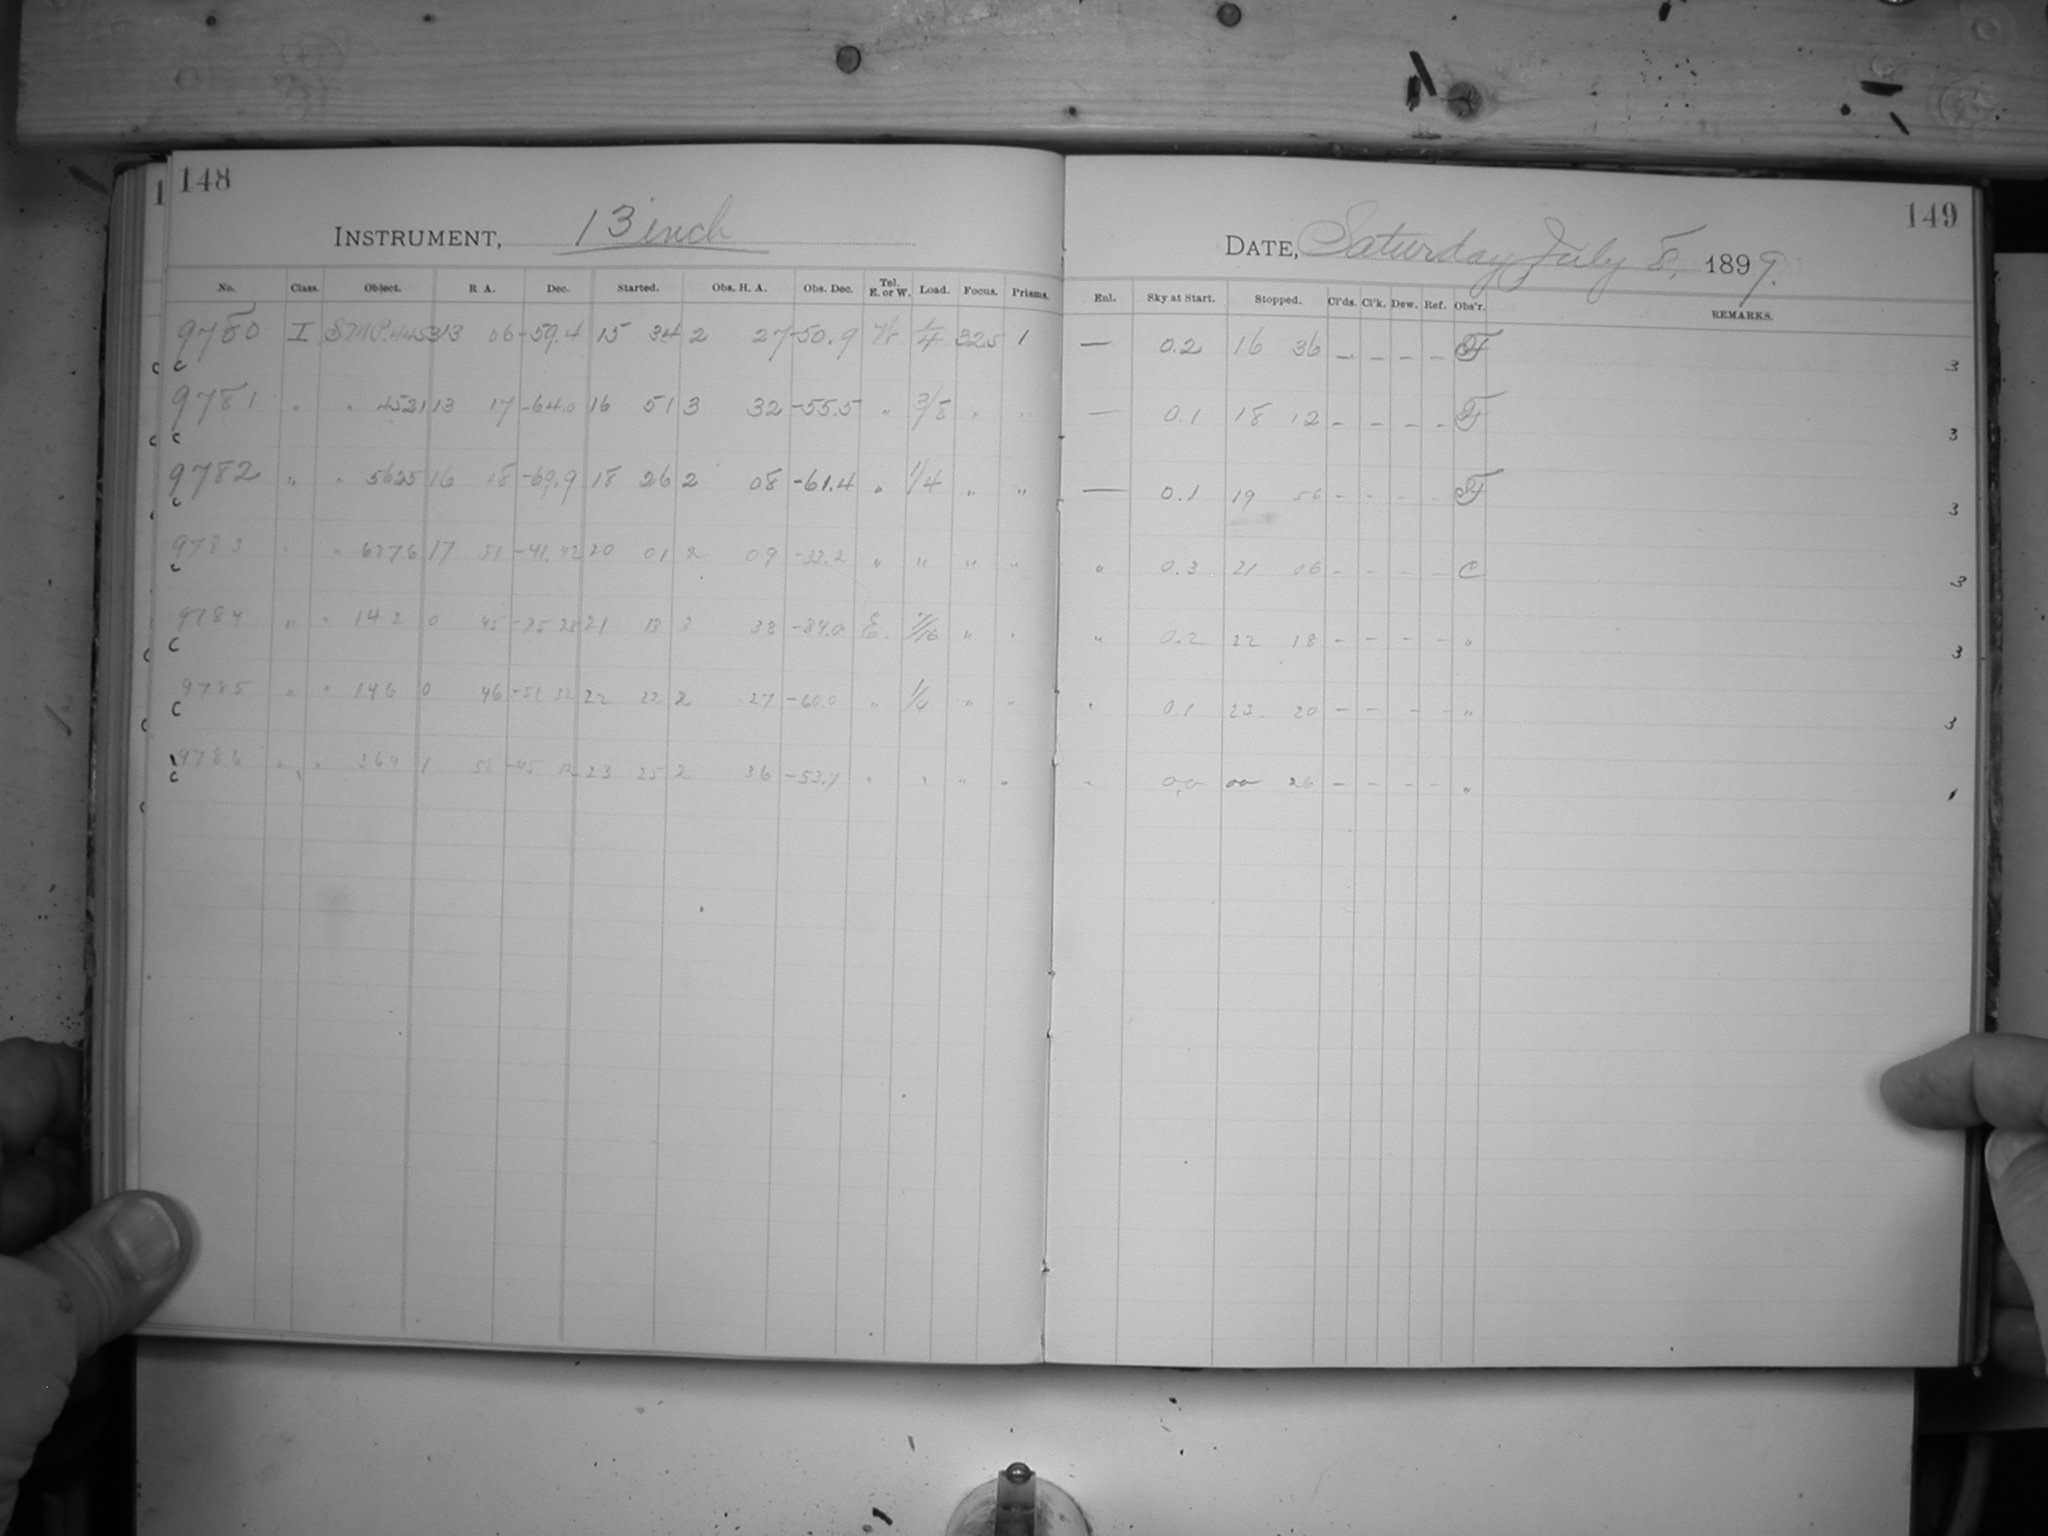 148
INSTRUMENT, 13 inch
No. Class. Object. R. A. Dec. Started. Obs. H. A. Obs. Dec. Tel. E. or W. Load. Focus. Prisms.
9780 I S.M.P. 4453 13 06 -59.4 15 34 2 27 -50.9 W 1/4 325 1
c
9781 " " 4521 13 17 -64.0 16 51 3 32 -55.5 " 3/8 " "
c
9782 " " 5625 16 18 -69.9 18 26 2 08 -61.4 " 1/4 " "
c
9783 " " 6276 17 51 -41. 20 01 2 09 -33.2 " " " "
c
9784 " " 142 0 45 -75 28 21 13 3 38 -84.0 E. 7/16 " "
c
9785 " " 146 0 46 -51 32 22 22 2 27 -60.0 " 1/4 " "
c
9786 " " 269 1 -45 12 23 25 2 36 -53.7 " " " "
c
149
DATE, Saturday July 8, 1899.
Enl. Sky at Start. Stopped. Cl'ds. Cl'k. Dew. Ref. Obs'r. REMARKS.
— 0.2 16 36 – – – – F 3
— 0.1 18 12 – – – – F 3
— 0.1 19 56 – – – – F 3
" 0.3 21 06 – – – – C 3
" 0.2 22 18 – – – – " 3
" 0.1 23 20 – – – – " 3
" 0.0 00 26 – – – – "